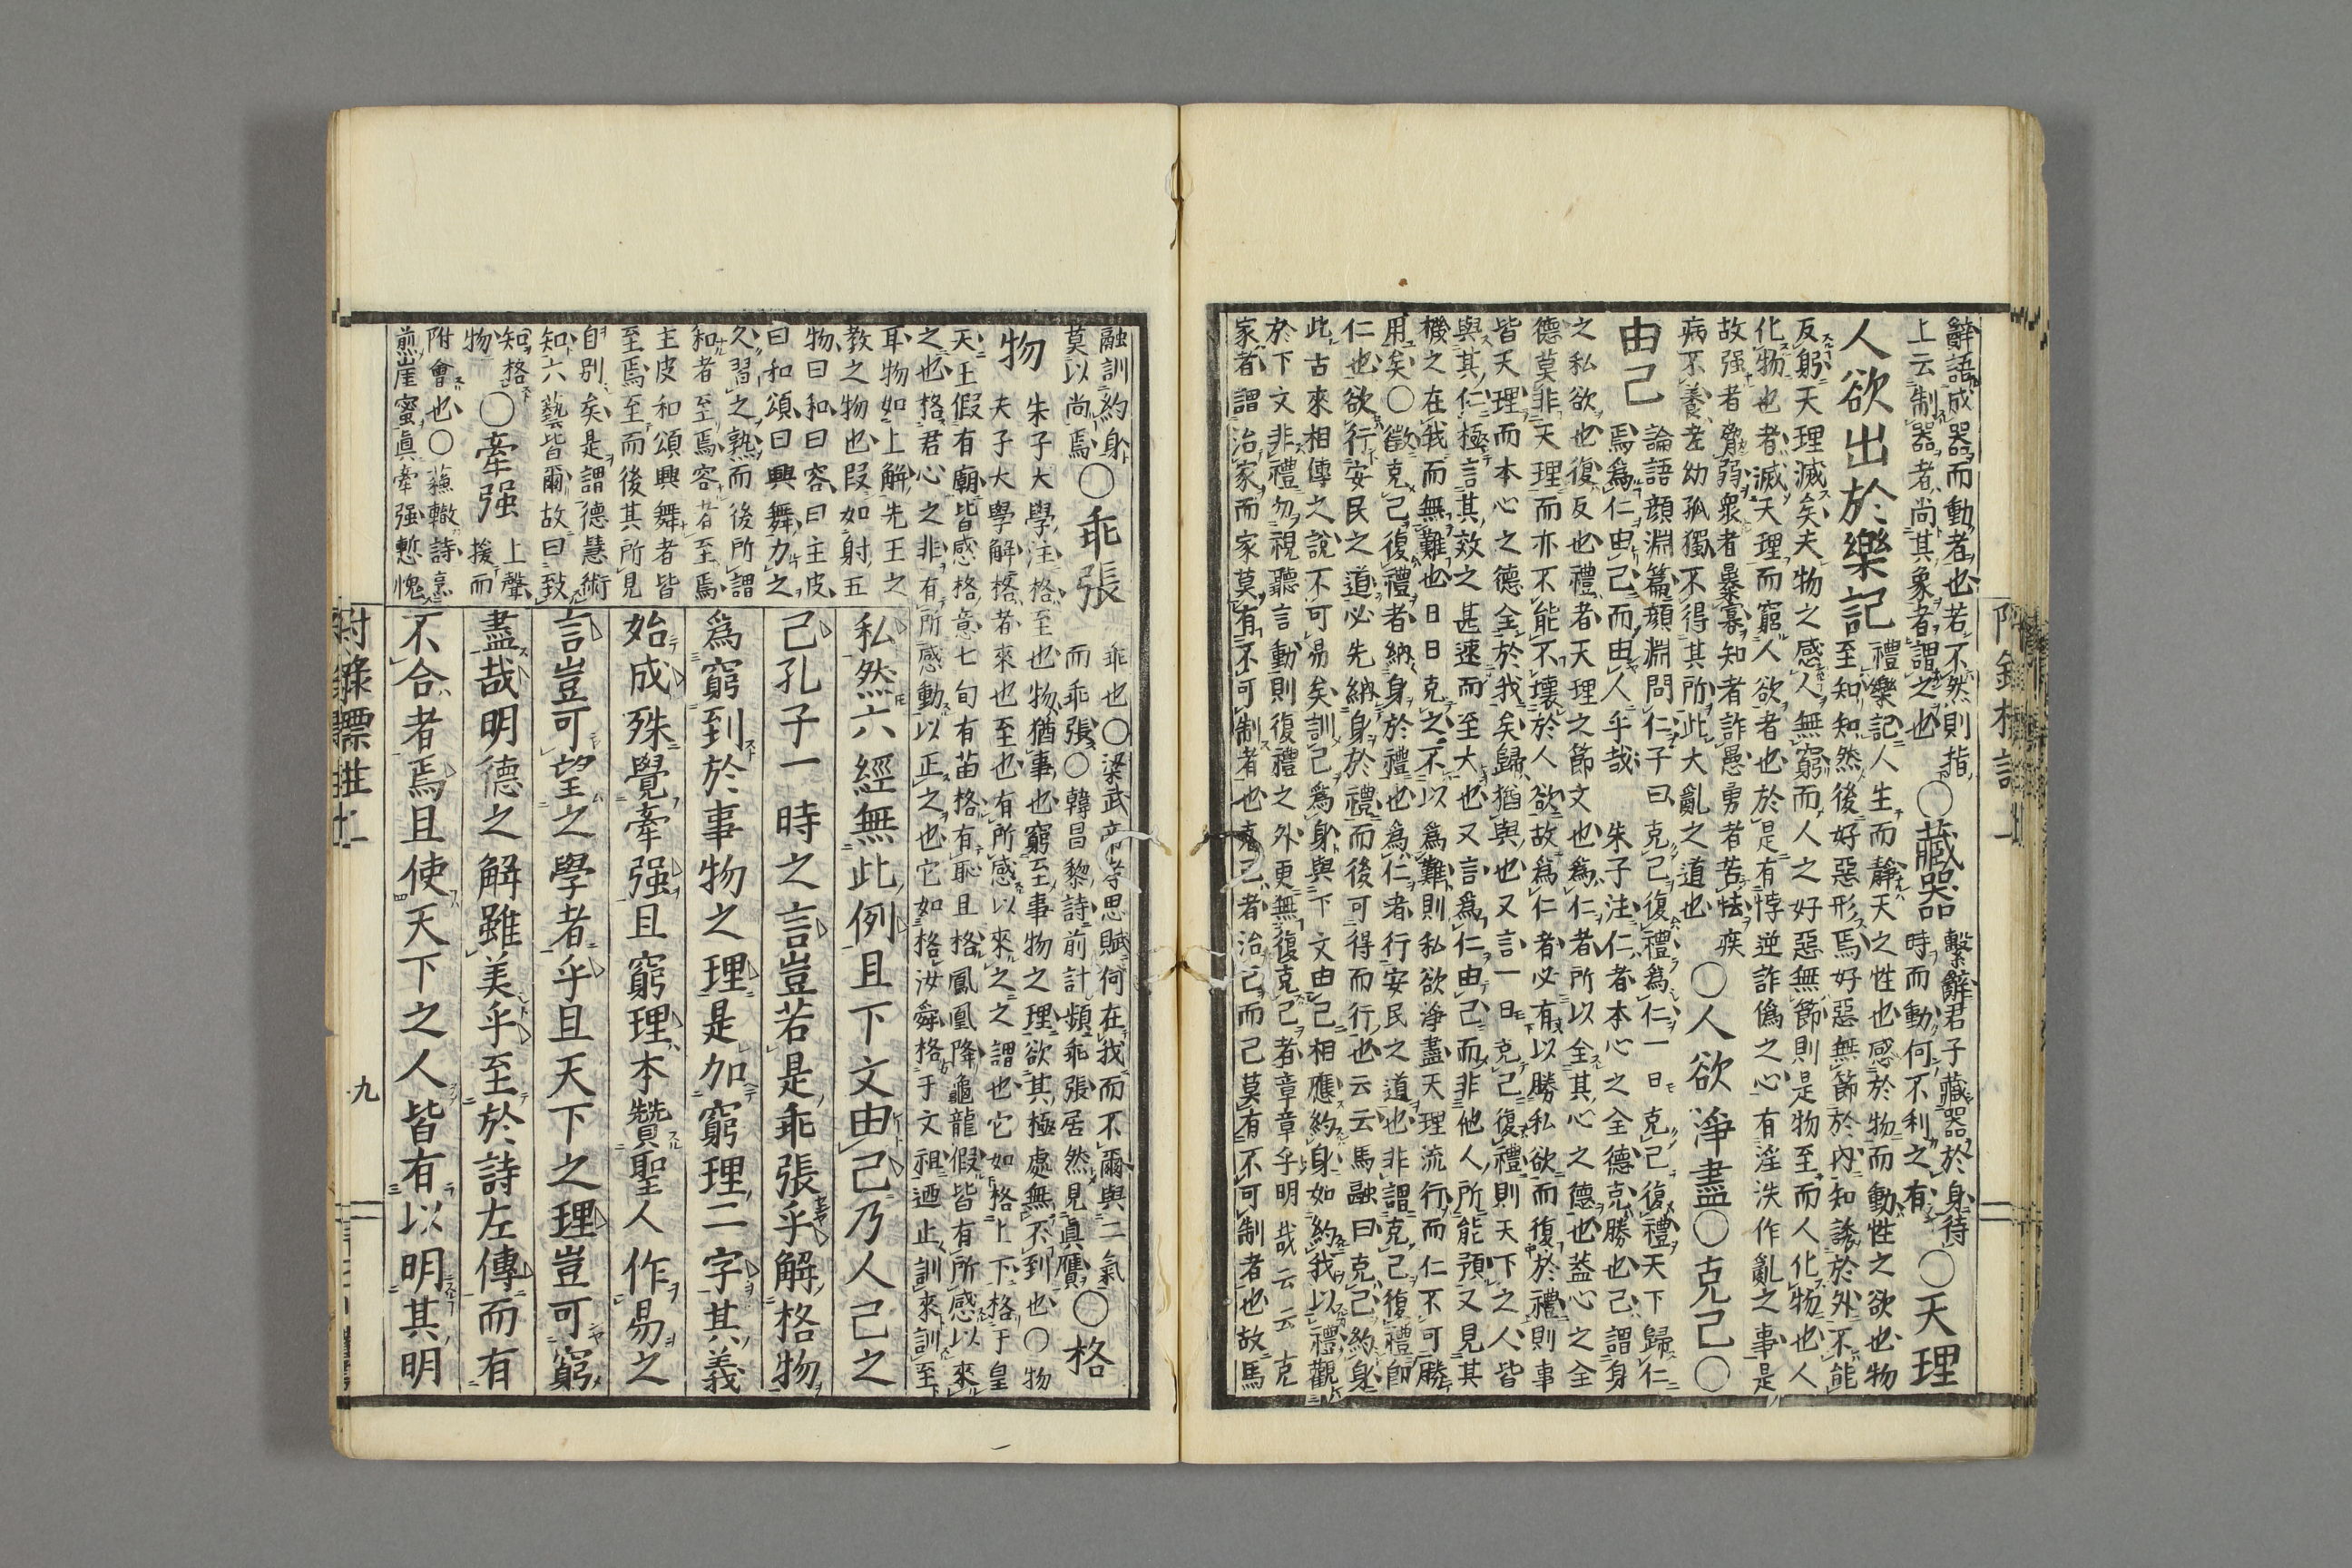 辭語成器而動者也若不然則指
上云制器者尚其象者謂之也
○藏器
繫辭君子藏器於身待
時而動何不利之有
○天理
人欲出於樂記
禮樂記人生而靜天之性也感於物而動性之欲也物
至知知然後好惡形焉好惡無節於內知誘於外不能
反躬天理滅矣夫物之感人無窮而人之好惡無節則是物至而人化物也人
化物也者滅天理而窮人欲者也於是有悖逆詐僞之心有淫泆作亂之事是
故强者脅弱衆者暴寡知者詐愚勇者苦怯疾
病不養老幼孤獨不得其所此大亂之道也
○人欲淨盡○克己○
由己
論語顏淵篇顏淵問仁子曰克己復禮爲仁一日克己復禮天下歸仁
焉爲仁由己而由人乎哉 朱子注仁者本心之全德克勝也己謂身
之私欲也復反也禮者天理之節文也爲仁者所以全其心之德也蓋心之全
德莫非天理而亦不能不壞於人欲故爲仁者必有以勝私欲而復於禮則事
皆天理而本心之德全於我矣歸猶與也又言一日克己復禮則天下之人皆
與其仁極言其效之甚速而至大也又言爲仁由己而非他人所能預又見其
機之在我而無難也日日克之不以爲難則私欲淨盡天理流行而仁不可勝
用矣○徵克己復禮者納身於禮也爲仁者行安民之道也非謂克己復禮卽
仁也欲行安民之道必先納身於禮而後可得而行也云云馬融曰克己約身
此古來相傳之說不可易矣訓己爲身與下文由己相應約身如約我以禮觀
於下文非禮勿視聽言動則復禮之外更無復克己者章章乎明哉云云克
家者謂治家而家莫有不可制者也克己者治己而己莫有不可制者也故馬
融訓約身
莫以尚焉
○乖張
乖也○梁武帝孝思賦何在我而不爾與二氣
而乖張○韓昌黎詩前計頓乖張居然見眞贋
○格
物
朱子大學注格至也物猶事也窮至事物之理欲其極處無不到也○物
夫子大學解格者來也至也有所感以來之之謂也它如格上下格于皇
天王假有廟皆感格意七旬有苗格有恥且格鳳凰降龜龍假皆有所感以來
之也格君心之非有所感動以正之也它如格汝舜格于文祖迺止訓來訓至
耳物如上解先王之
教之物也叚如射五
物曰和曰容曰主皮
曰和頌曰興舞力之
久習之熟而後所謂
和者至焉容者至焉
主皮和頌興舞者皆
至焉至而後其所見
自別矣是謂德慧術
知六藝皆爾故曰致
知格
物
○牽强
上聲
援而
附會也○蘓轍詩烹
煎崖蜜眞牽强慙愧
私然六經無此例且下文由己乃人己之
己孔子一時之言豈若是乖張乎解格物
爲窮到於事物之理是加窮理二字其義
始成殊覺牽强且窮理本贊聖人作易之
言豈可望之學者乎且天下之理豈可窮
盡哉明德之解雖美乎至於詩左傳而有
不合者焉且使天下之人皆有以明其明
九